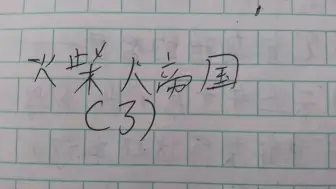 火柴人帝国
(3)